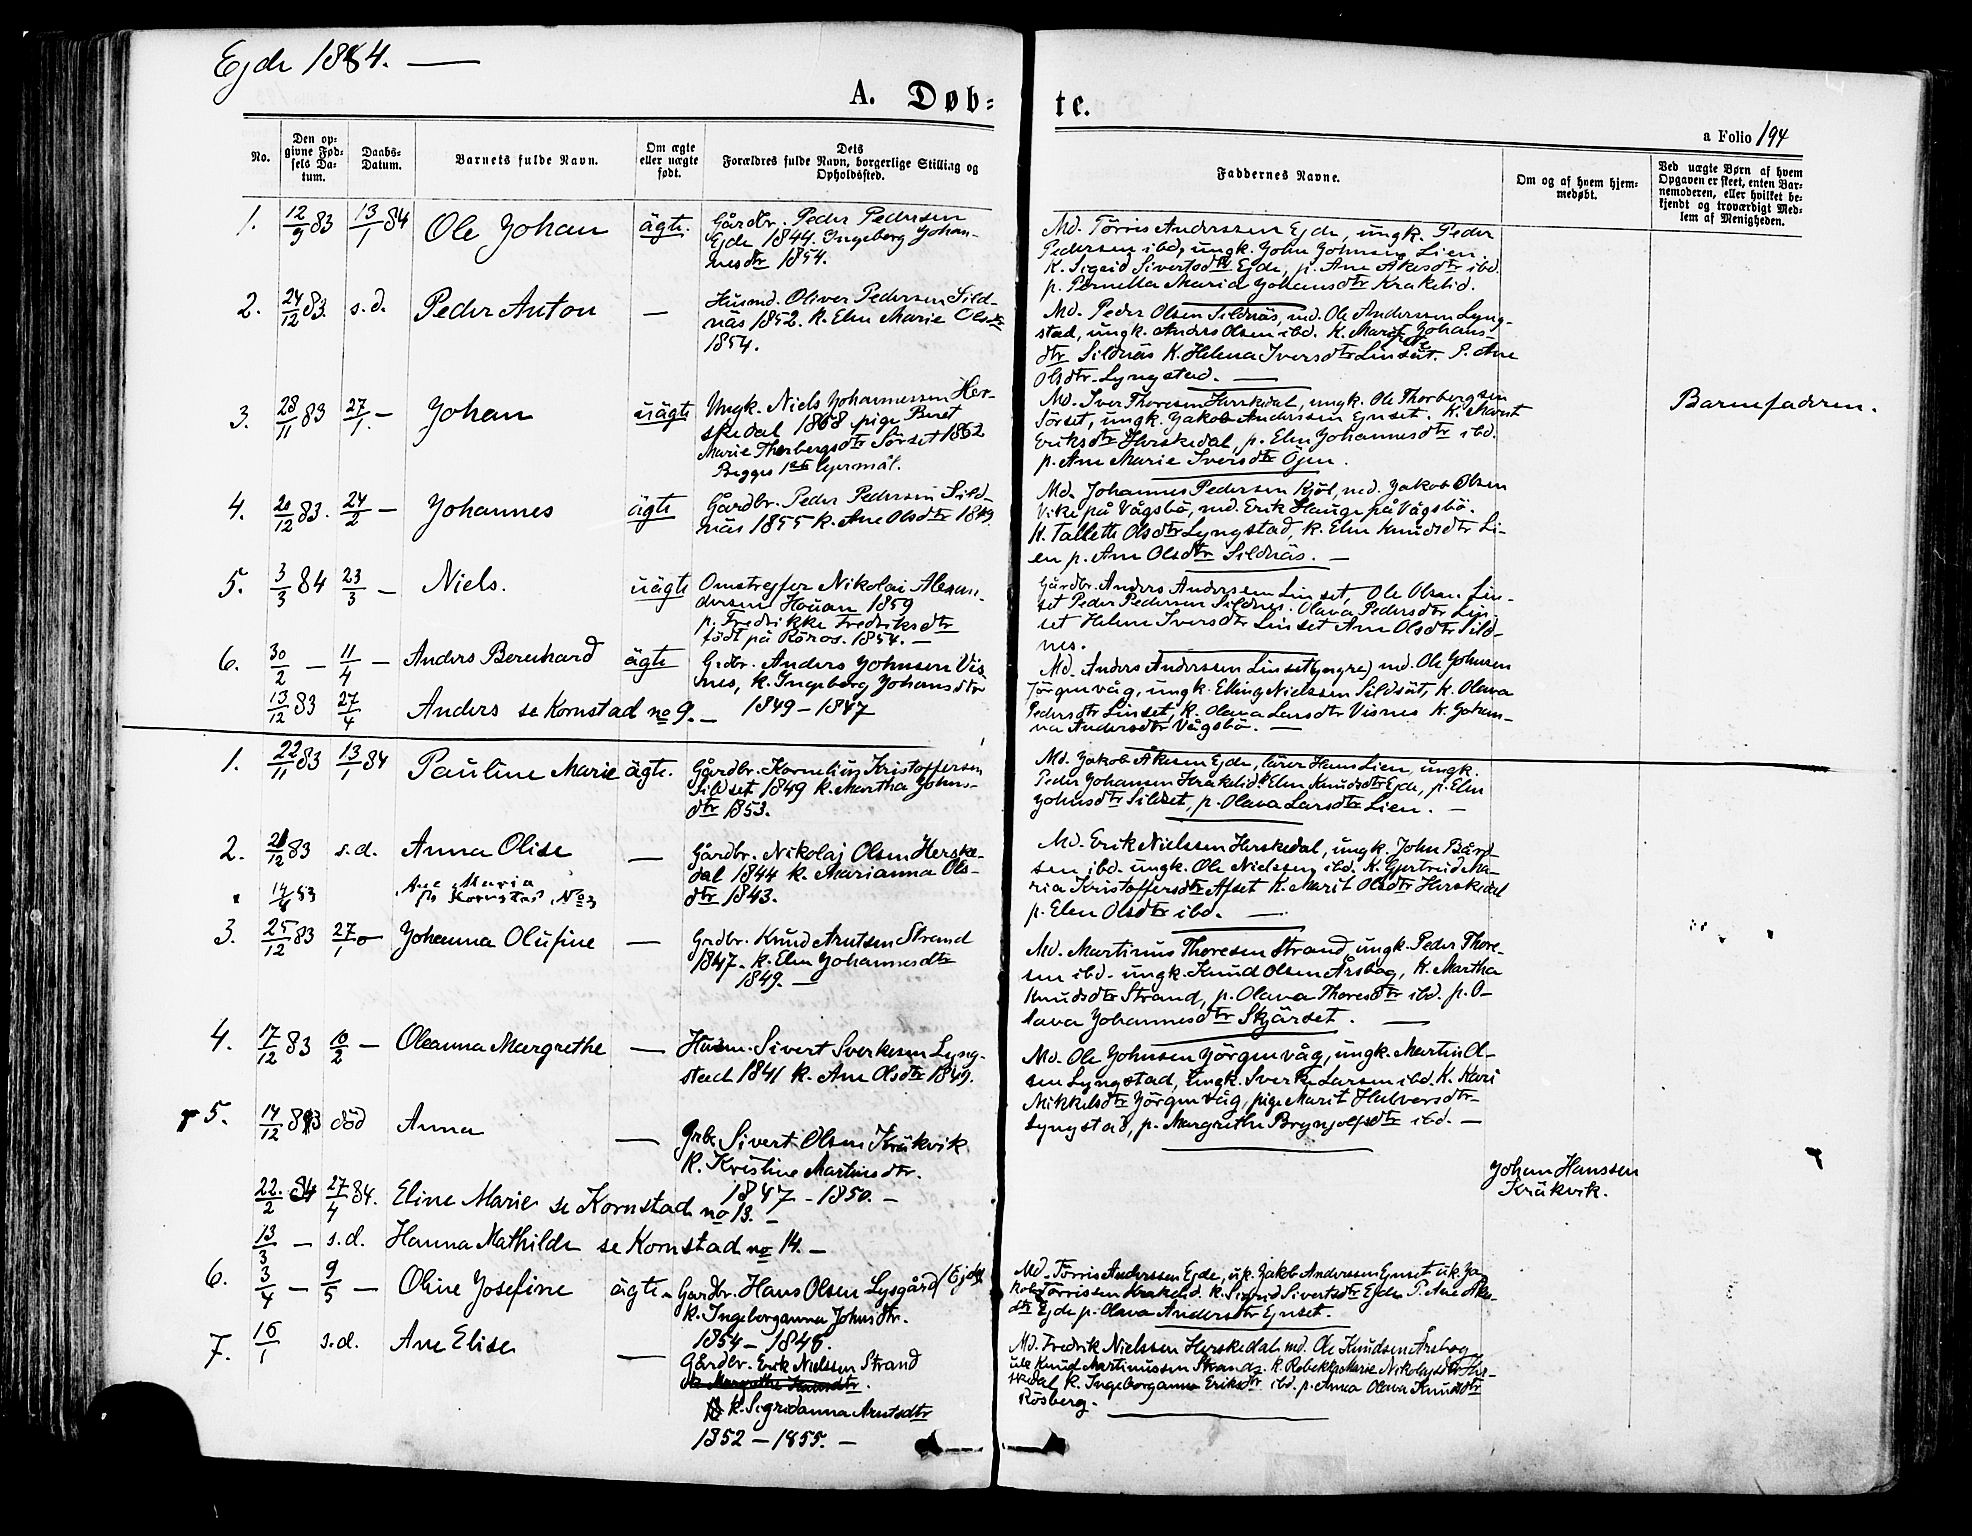 Ejde 1884. —
A. Døb-
te.
a Folio 194
No.
Den op-
givne Fød-
sels Da-
tum.
Daabs-
Datum.
Barnets fulde Navn.
Om ægte
eller uægte
født.
Dets
Forældres fulde Navn, borgerlige Stilling og
Opholdssted.
Faddernes Navne.
Om og af hvem hjem-
medøbt.
Ved uægte Børn af hvem
Opgaven er skeet, enten Bar-
nemoderen, eller hvilket be-
kjendt og troværdigt Med-
lem af Menigheden.
1. 12/9 83 13/1 84 Ole Johan ägte.
Gårdbr. Peder Pedersen
Ejde 1844. Ingeberg Johan-
nesdtr 1854.
Md. Törris Anderssen Ejde, ungk. Peder
Pedersen ibd, ungk. John Johnsen Lien.
K. Sigrid Sivertsdtr Ejde, p. Ane Åkesdtr ibd.
p. Pernella Maria Johansdtr Kräkelid.
2. 24/12 83. s.d. Peder Anton —
Husmd. Oliver Pedersen Sild-
näs 1852. k. Elen Marie Olsdtr
1854.
Md. Peder Olsen Sildnäs, md. Ole Anderssen Lyng-
stad, ungk. Anders Olsen ibd. K. Marit Johans-
dtr Sildnäs K. Helena Iversdtr Linsät. P. Ane
Olsdtr. Lyngstad. —
3. 28/11 83 27/1 — Johan uägte
Ungk. Niels Johannessen Her-
skedal 1868 pige Beret
Marie Thorbergsdtr Sörset 1862
Begges 1ste lejermål.
Md. Iver Thoresen Herskedal, ungk. Ole Thorbergsen
Sörset, ungk. Jakob Anderssen Ejnset. K. Marit
Eriksdtr Herskedal, p. Elen Johannesdtr ibd.
p. Ane Marie Iversdtr Öjen.
Barnefaderen.
4. 20/12 83. 24/2 — Johannes ägte
Gårdbr. Peder Pedersen Sild-
näs 1855 k. Ane Olsdtr 1849.
Md. Johannes Pedersen Kjöl, md. Jakob Olsen
Vike på Vågsbö, md. Erik Hauge på Vågsbö.
K. Tallette Olsdtr Lyngstad, k. Elen Knudsdtr Li-
en p. Ane Olsdtr Sildnäs. —
5. 3/3 84 23/3 — Niels. uägte
Omstrejfer Nikolai Alexan-
dersen Houan 1859
p. Fredrikke Fredriksdtr
født på Röros. 1854. —
Gårdbr. Anders Anderssen Linset Ole Olsen Lin-
set Peder Pedersen Sildnes. Olava Pedersdtr Lin-
set Helene Iversdtr Linset Ane Olsdtr Sild-
nes.
6. 30/2 — 11/4 — Anders Bernhard ägte
Grdbr. Anders Johnsen Vis-
nes, k. Ingeberg Johansdtr
1849 – 1847
Md. Anders Anderssen Linset (yngre) md. Ole Johnsen
Jörgenvåg, ungk. Elling Nielssen Sildsät, K. Olava
Pedersdtr Linset, k. Olava Larsdtr Visnes K. Johan-
na Andersdtr Vågsbö. —
13/12 83 27/4 Anders se Kornstad no 9. —
1. 22/11 83 13/1 84 Pauline Marie ägte.
Gårdbr. Kornelius Kristoffersen
Sildset 1849 k. Martha Johns-
dtr 1853.
Md. Jakob Åkesen Ejde, lärer Hans Lien, ungk.
Peder Johansen Kräkelid. Elen Knudsdtr Ejde, p. Elen
Johnsdtr Sildset, p. Olava Larsdtr Lien. —
2. 21/12 83 s.d. Anna Olise —
Gårdbr. Nikolaj Olsen Herske-
dal 1844 k. Marianna Ols-
dtr 1843.
Md. Erik Nielssen Herskedal, ungk. John Bärd-
sen ibd. ungk. Ole Nielssen ibd. K. Gjertrud Ma-
ria Kristoffersdtr Afset K. Marit Olsdtr Herskedal
p. Elen Olsdtr ibd. —
Ane Maria
fra Kornstad, No 3
3. 25/12 83 27/1 Johanna Olufine —
Grdbr. Knud Arntsen Strand
1847. k. Elen Johannesdtr
1849. —
Md. Martinus Thoresen Strand ungk. Peder Thore-
sen ibd. ungk. Knud Olsen Årsbog, K. Martha
Knudsdtr Strand, p. Olava Thoresdtr ibd. p. O-
lava Johannesdtr Skjärset. —
4. 17/12 83 10/2 — Oleanna Margrethe —
Husm. Sivert Sverkesen Lyng-
stad 1841 k. Ane Olsdtr 1849.
Md. Ole Johnsen Jörgenvåg, ungk. Martin Ol-
sen Lyngstad, ungk. Sverke Larsen ibd. K. Kari
Mikkelsdtr Jörgenvåg, pige Marit Halversdtr
Lyngstad, p. Margrethe Brynjolfsdtr ibd. —
5. 14/12 83 död Anna —
Grbr Sivert Olsen Kräkvik
K. Kristine Martinsdtr.
1847 – 1850. —
Johan Hanssen
Kräkvik.
22/2 84 27/4 84. Eline Marie se Kornstad no 13. —
13/3 — s.d. Hanna Mathilde se Kornstad no 14. —
6. 3/4 — 9/5 — Oline Josefine ägte
Gardbr. Hans Olsen Lysgård / Ejde
k. Ingeborganna Johnsdtr.
1854 – 1848.
Md. Törris Anderssen Ejde, u.k. Jakob Anderssen Ejnset u.k. Ja-
kob Törrissen Kräkelid. K. Sigrid Sivertsdtr Ejde P. Ane Åke-
dtr Ejde p. Olava Andersdtr Ejnset.
7. 16/1 s.d. Ane Elise —
Gårdbr. Erik Nielssen Strand
k. Sigridanna Arntsdtr
1852 – 1855. —
Md. Fredrik Nielssen Herskedal md. Ole Knudsen Årsbog
u.k. Knud Martinussen Strand. K. Rebekka Marie Nikolajsdtr Her-
skedal K. Ingeborganna Eriksdtr ibd. p. Anna Olava Knudsdtr
Rösberg.